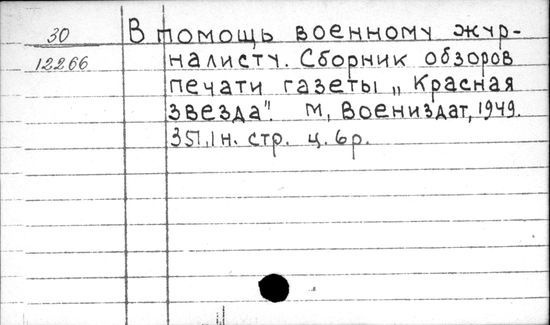 30
12266
В помощь военному жур-
налисту. Сборник обзоров
печати газеты „Красная
звезда". М, Воениздат, 1949.
351, 1н. стр. ц. 6р.